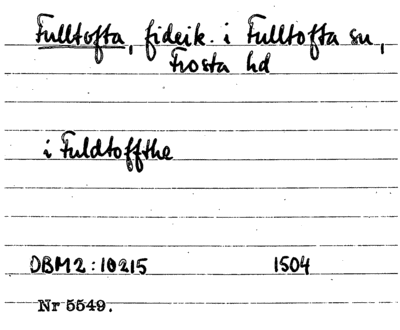 Fulltofta, fideik. i Fulltofta sn,
Frosta hd
i Fuldtoffthe
DBM2:10215 1504
Nr 5549.